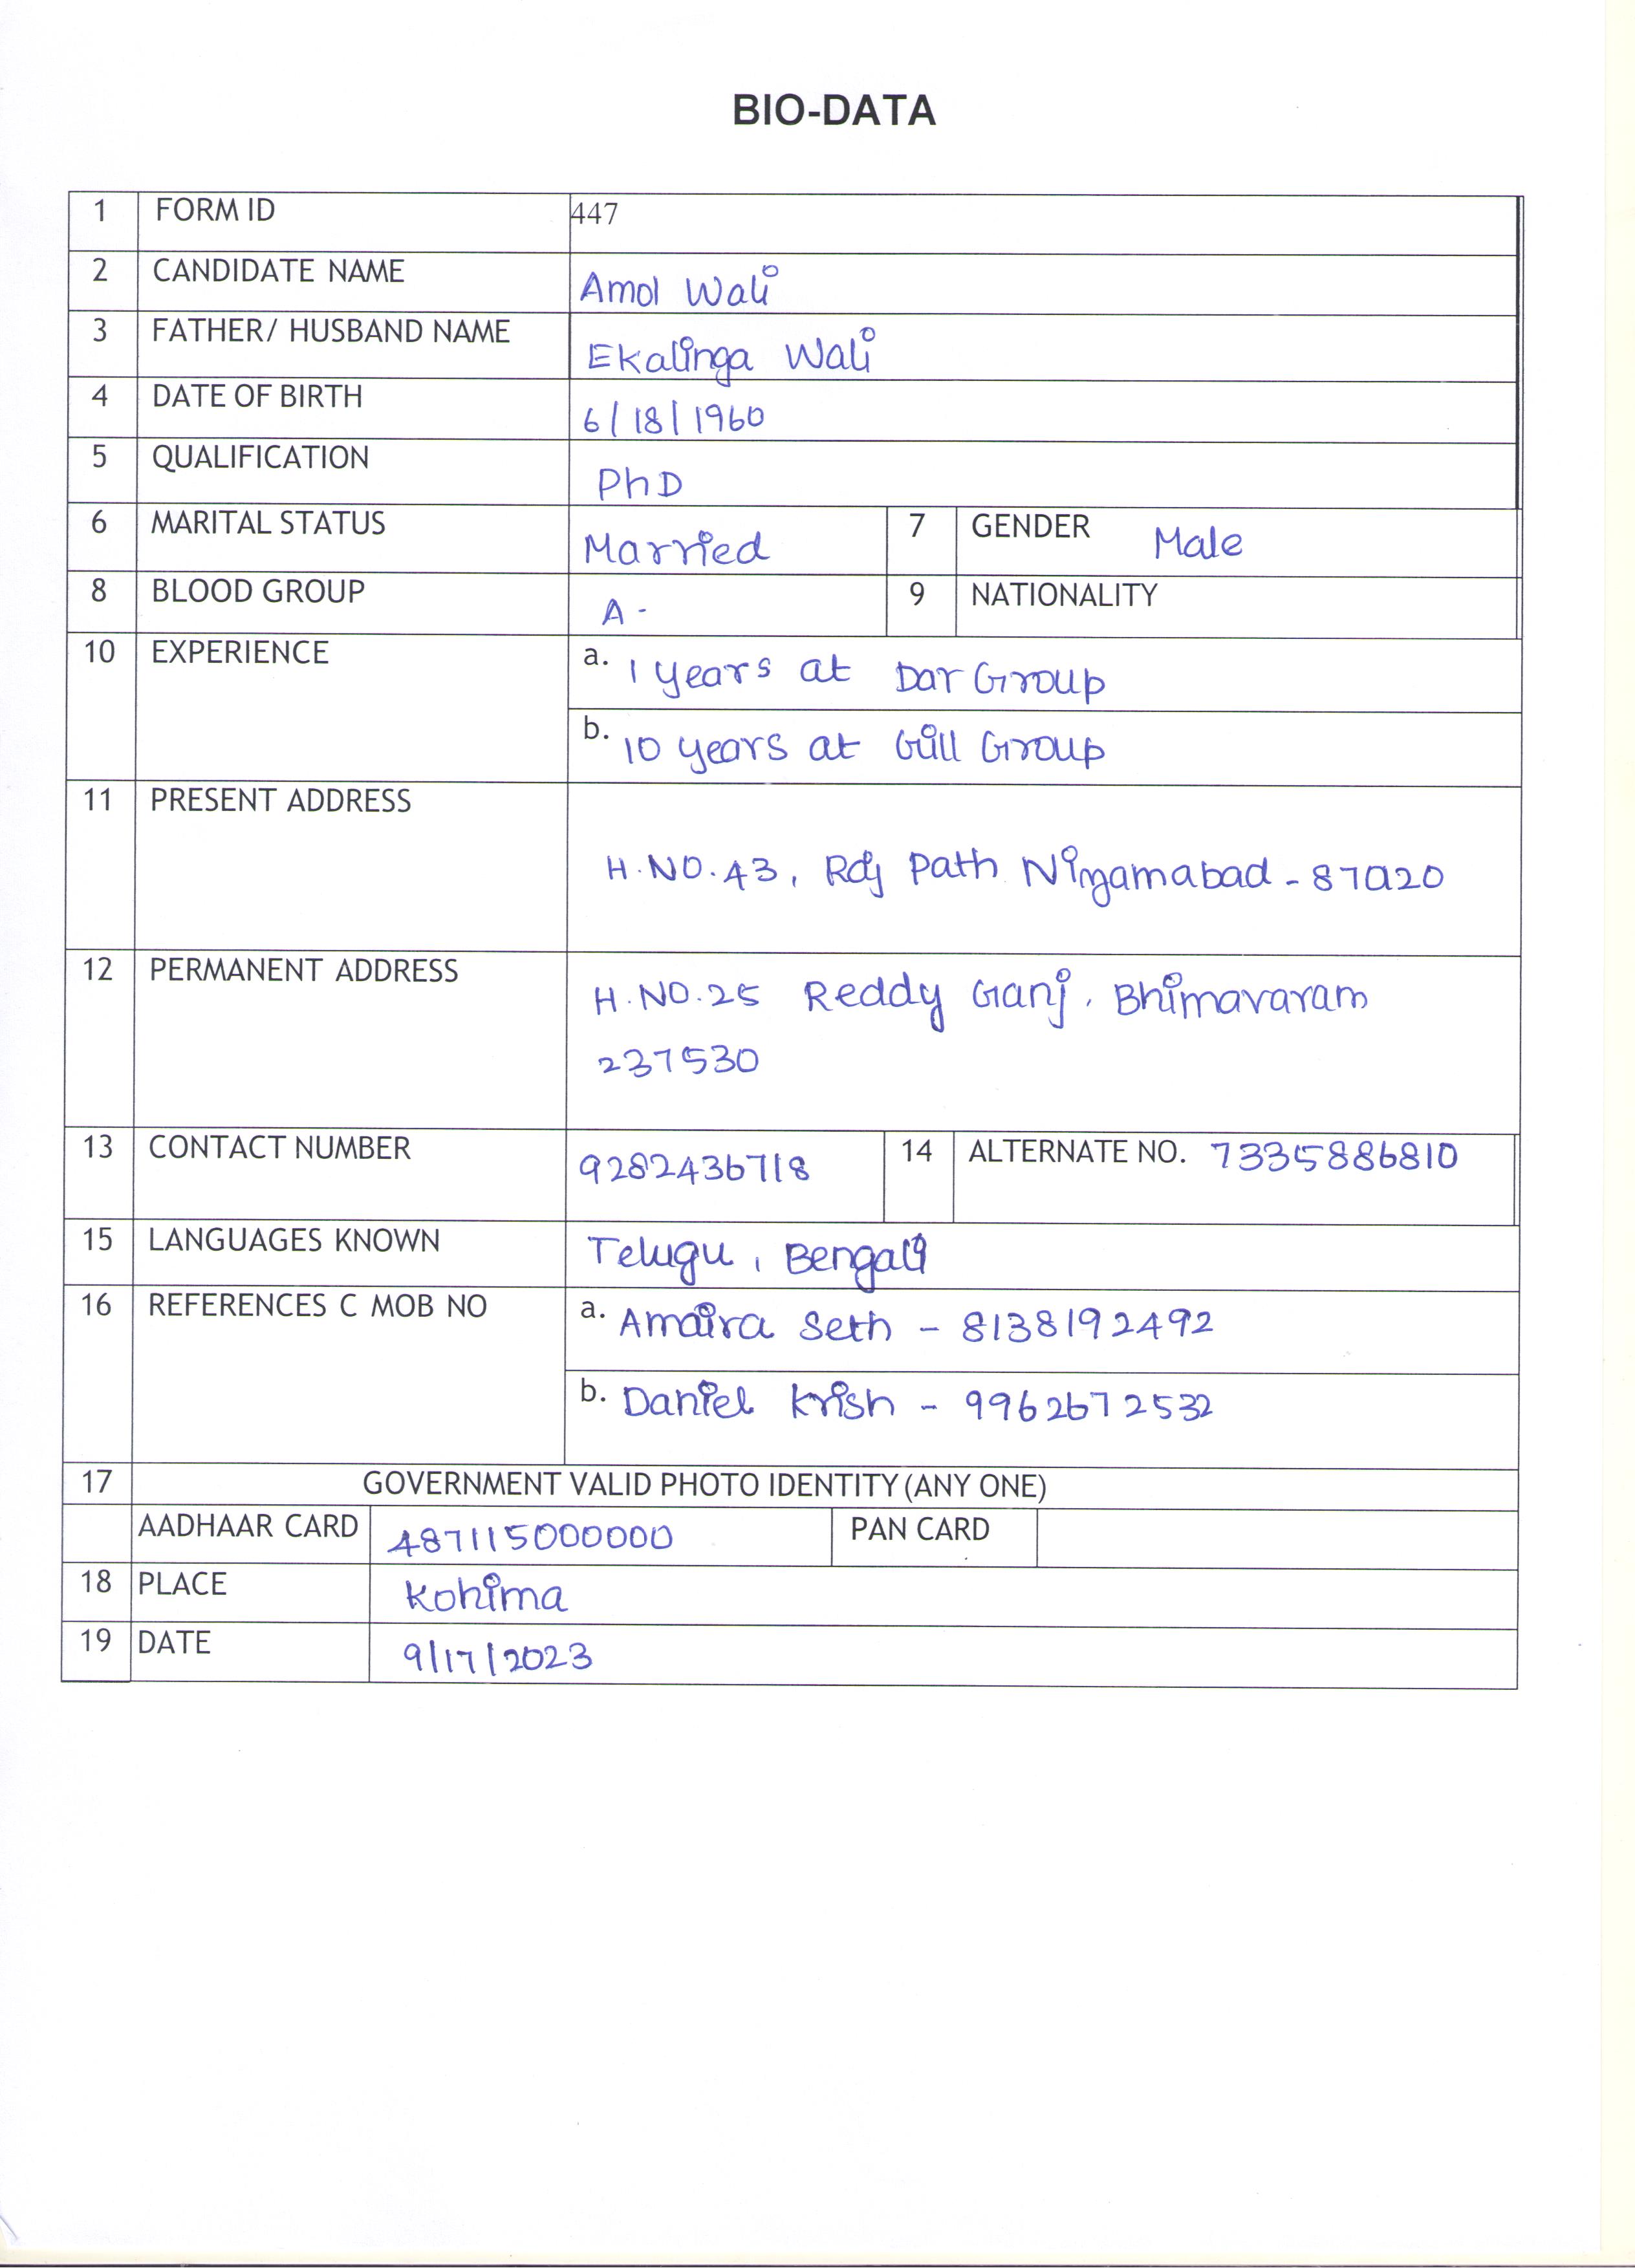 BIO-DATA
1 FORM ID 447
2 CANDIDATE NAME Amol Wali
3 FATHER/ HUSBAND NAME Ekalinga Wali
4 DATE OF BIRTH 6/18/1960
5 QUALIFICATION PhD
6 MARITAL STATUS Married 7 GENDER Male
8 BLOOD GROUP A- 9 NATIONALITY
10 EXPERIENCE a. 1 years at Dar Group
b. 10 years at Gill Group
11 PRESENT ADDRESS
H.NO.43, Raj Path Nizamabad - 87020
12 PERMANENT ADDRESS H.NO.25 Reddy Ganj, Bhimavaram
237530
13 CONTACT NUMBER 9282436718 14 ALTERNATE NO. 7335886810
15 LANGUAGES KNOWN Telugu, Bengali
16 REFERENCES C MOB NO a. Amaira Seth - 8138192492
b. Daniel Krish - 9962672532
17 GOVERNMENT VALID PHOTO IDENTITY (ANY ONE)
AADHAAR CARD 487115000000 PAN CARD
18 PLACE Kohima
19 DATE 9/17/2023